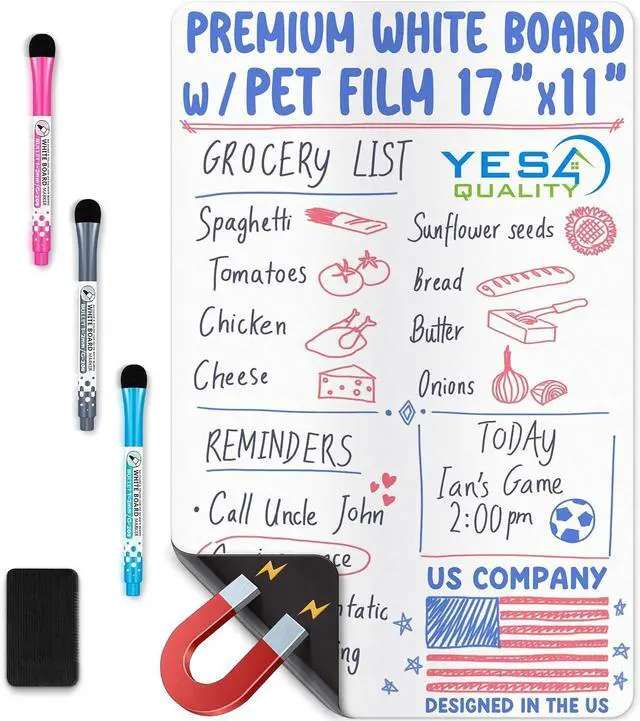 PREMIUM WHITE BOARD
w/PET FILM 17"x11"
GROCERY LIST
YES4
QUALITY
Spaghetti
Tomatoes
Chicken
Cheese
Sunflower seeds
Bread
Butter
Onions
REMINDERS
• Call Uncle John
TODAY
Ian's Game
2:00pm
US COMPANY
DESIGNED IN THE US
WHITE BOARD MARKER
WHITE BOARD MARKER
WHITE BOARD MARKER